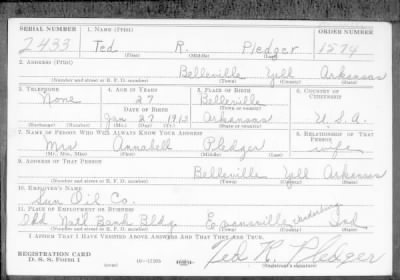 SERIAL NUMBER 1. NAME (Print) ORDER NUMBER
2433 Ted R. Pledger 1574
(First) (Middle) (Last)
2. ADDRESS (Print)
Belleville Yell Arkansas
(Number and street or R. F. D. number) (Town) (County) (State)
3. TELEPHONE 4. AGE IN YEARS 5. PLACE OF BIRTH 6. COUNTRY OF CITIZENSHIP
None 27 Belleville
DATE OF BIRTH (Town or county)
Jan 27 1913 Arkansas U.S.A.
(Exchange) (Number) (Mo.) (Day) (Yr.) (State or country)
7. NAME OF PERSON WHO WILL ALWAYS KNOW YOUR ADDRESS 8. RELATIONSHIP OF THAT PERSON
Mrs Annabell Pledger wife
(Mr., Mrs., Miss) (First) (Middle) (Last)
9. ADDRESS OF THAT PERSON
Belleville Yell Arkansas
(Number and street or R. F. D. number) (Town) (County) (State)
10. EMPLOYER'S NAME
Sun Oil Co.
11. PLACE OF EMPLOYMENT OR BUSINESS
Old Natl Bank Bldg Evansville Vanderburg Ind
(Number and street or R. F. D. number) (Town) (County) (State)
I AFFIRM THAT I HAVE VERIFIED ABOVE ANSWERS AND THAT THEY ARE TRUE.
REGISTRATION CARD
D. S. S. FORM 1 (over) Ted R. Pledger
(Registrant's signature)